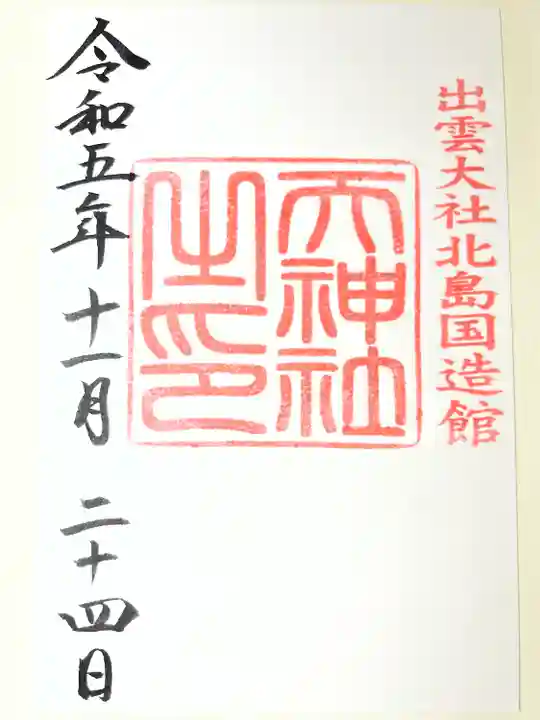 出雲大社北島国造館
天神社
之印
令和五年十一月 二十四日